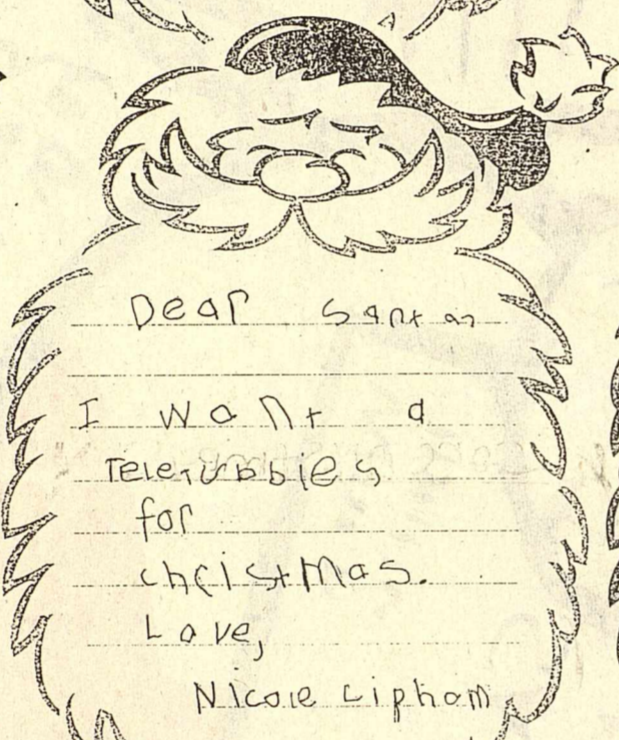 Dear Santa
I want a
Teletubbies
for
christmas.
Love,
Nicole Lipham